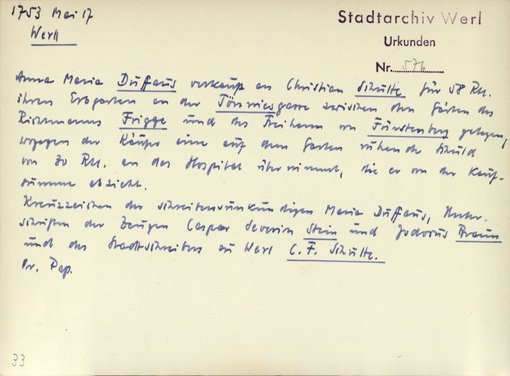 1753 Mai 17
Werl
Stadtarchiv Werl
Urkunden
Nr. 576
Anna Maria Duffaus verkauft an Christian Schulte für 58 Rt.
ihren Erbgarten an der Tönniesgasse zwischen den Gärten des
Richtmanns Frigge und des Freiherrn von Fürstenberg gelegen,
wogegen der Käufer eine auf dem Garten ruhende Schuld
von 30 Rt. an das Hospital übernimmt, die er von der Kauf-
summe abzieht.
Kreuzzeichen der schreibensunkundigen Maria Duffaus, Unter-
schriften der Zeugen Caspar Severin Stein und Jodocus Braun
und des Stadtschreibers zu Werl C. F. Schulte.
Or. Pap.
33